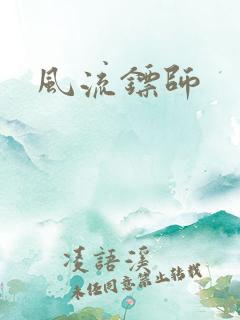 風流鏢師
凌語溪
未經同意禁止轉載